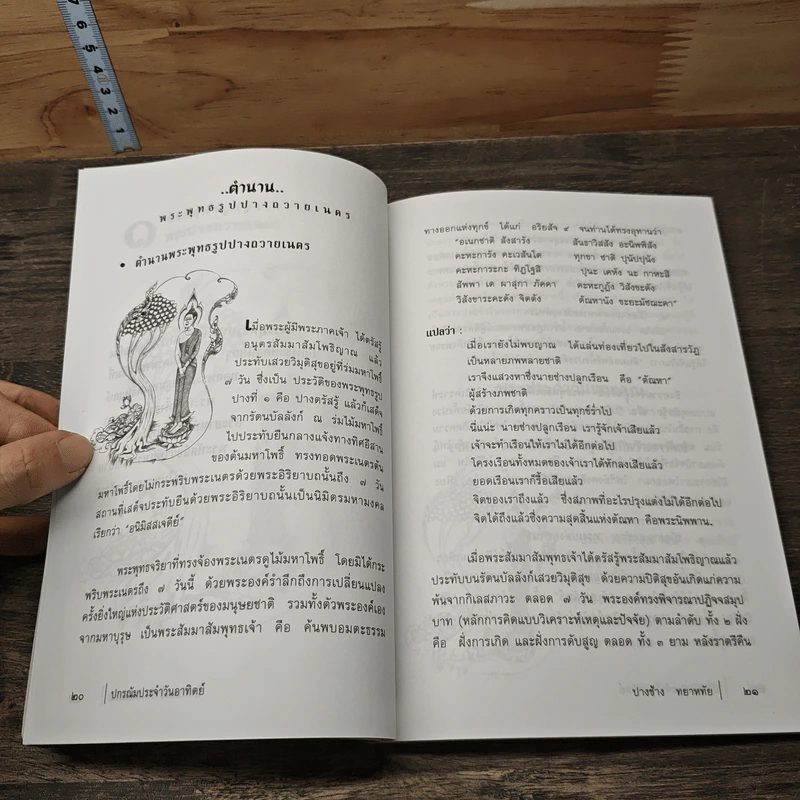 7 6 5 4 3 2 1
..ตำนาน..
พระพุทธรูปปางถวายเนตร
• ตำนานพระพุทธรูปปางถวายเนตร
เมื่อพระผู้มีพระภาคเจ้า ได้ตรัสรู้
อนุตรสัมมาสัมโพธิญาณ แล้ว
ประทับเสวยวิมุติสุขอยู่ที่ร่มมหาโพธิ์
๗ วัน ซึ่งเป็น ประวัติของพระพุทธรูป
ปางที่ ๑ คือ ปางตรัสรู้ แล้วก็เสด็จ
จากรัตนบัลลังก์ ณ ร่มไม้มหาโพธิ์
ไปประทับยืนกลางแจ้งทางทิศอีสาน
ของต้นมหาโพธิ์ ทรงทอดพระเนตรต้น
มหาโพธิ์โดยไม่กระพริบพระเนตรด้วยพระอิริยาบถนั้นถึง ๗ วัน
สถานที่เสด็จประทับยืนด้วยพระอิริยาบถนั้นเป็นนิมิตรมหามงคล
เรียกว่า "อนิมิสสเจดีย์"
พระพุทธจริยาที่ทรงจ้องพระเนตรดูไม้มหาโพธิ์ โดยมิได้กระ
พริบพระเนตรถึง ๗ วันนี้ ด้วยพระองค์รำลึกถึงการเปลี่ยนแปลง
ครั้งยิ่งใหญ่แห่งประวัติศาสตร์ของมนุษยชาติ รวมทั้งตัวพระองค์เอง
จากมหาบุรุษ เป็นพระสัมมาสัมพุทธเจ้า คือ ค้นพบอมตะธรรม
๒๐ ปกรณัมประจำวันอาทิตย์
ทางออกแห่งทุกข์ ได้แก่ อริยสัจ ๔ จนท่านได้ทรงอุทานว่า
"อเนกชาติ สังสารัง สันธาวิสสัง อะนิพพิสัง
คะหะการัง คะเวสันโต ทุกขา ชาติ ปุนัปปุนัง
คะหะการะกะ ทิฏโฐสิ ปุนะ เคหัง นะ กาหะสิ
สัพพา เต ผาสุกา ภัคคา คะหะกูฏัง วิสังขะตัง
วิสังขาระคะตัง จิตตัง ตัณหานัง ขะยะมัชฌะคา"
แปลว่า :
เมื่อเรายังไม่พบญาณ ได้แล่นท่องเที่ยวไปในสังสารวัฏ
เป็นหลายภพหลายชาติ
เราจึงแสวงหาซึ่งนายช่างปลูกเรือน คือ "ตัณหา"
ผู้สร้างภพชาติ
ด้วยการเกิดทุกคราวเป็นทุกข์ร่ำไป
นี่แน่ะ นายช่างปลูกเรือน เรารู้จักเจ้าเสียแล้ว
เจ้าจะทำเรือนให้เราไม่ได้อีกต่อไป
โครงเรือนทั้งหมดของเจ้าเราได้หักลงเสียแล้ว
ยอดเรือนเราก็รื้อเสียแล้ว
จิตของเราถึงแล้ว ซึ่งสภาพที่อะไรปรุงแต่งไม่ได้อีกต่อไป
จิตได้ถึงแล้วซึ่งความสุดสิ้นแห่งตัณหา คือพระนิพพาน.
เมื่อพระสัมมาสัมพุทธเจ้าได้ตรัสรู้พระสัมมาสัมโพธิญาณแล้ว
ประทับบนรัตนบัลลังก์เสวยวิมุติสุข ด้วยความปิติสุขอันเกิดแก่ความ
พ้นจากกิเลสภาวะ ตลอด ๗ วัน พระองค์ทรงพิจารณาปฏิจจสมุป
บาท (หลักการคิดแบบวิเคราะห์เหตุและปัจจัย) ตามลำดับ ทั้ง ๒ ฝั่ง
คือ ฝั่งการเกิด และฝั่งการดับสูญ ตลอด ทั้ง ๓ ยาม หลังราตรีคืน
ปางช้าง ทยาหทัย ๒๑